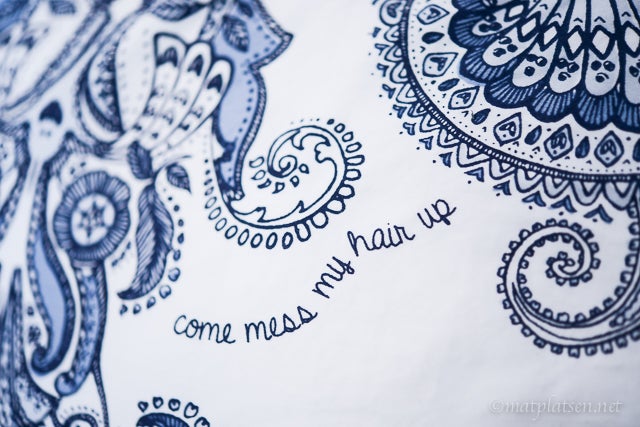 come mess my hair up
©matplatsen.net